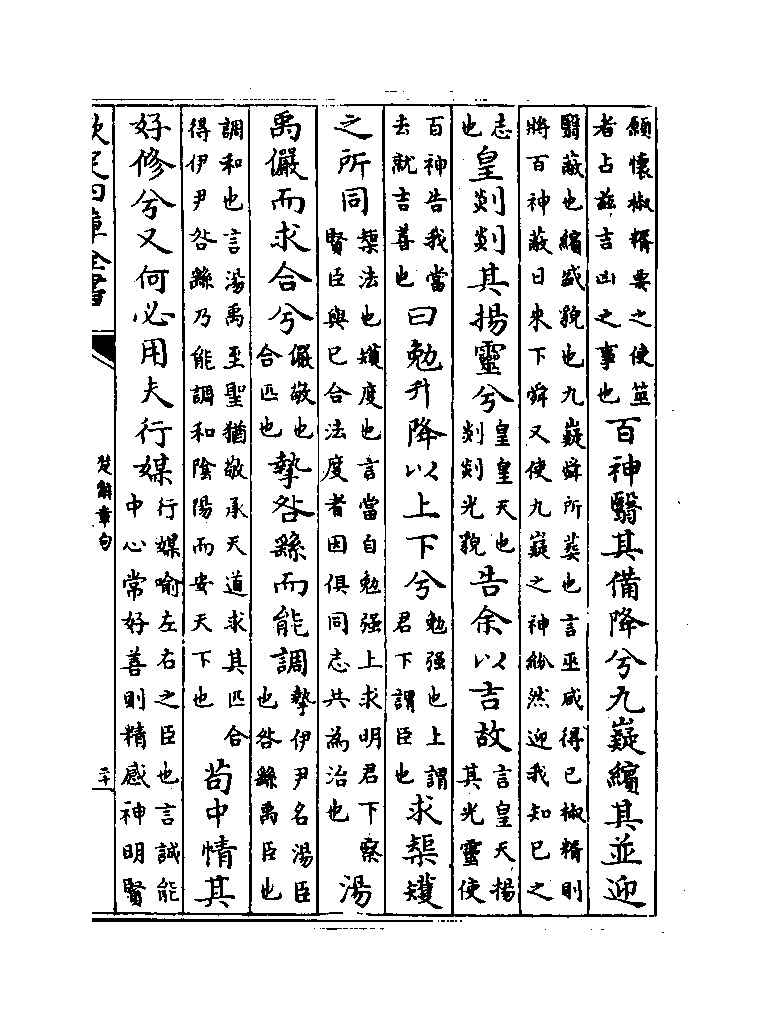 願懷椒糈要之使筮者占茲吉凶之事也百神翳其備降兮九嶷繽其並迎
翳蔽也繽盛貌也九嶷舜所葬也言巫咸得已椒糈則將百神蔽日來下舜又使九嶷之神紛然迎我知已之
志也皇剡剡其揚靈兮皇皇天也剡剡光貌告余以吉故言皇天揚其光靈使
百神告我當去就吉善也曰勉升降以上下兮勉强也上謂君下謂臣也求榘矱
之所同榘法也矱度也言當自勉强上求明君下察賢臣與已合法度者因俱同志共為治也湯
禹儼而求合兮儼敬也合匹也摯咎繇而能調摯伊尹名湯臣也咎繇禹臣也
調和也言湯禹至聖猶敬承天道求其匹合得伊尹咎繇乃能調和陰陽而安天下也苟中情其
好修兮又何必用夫行媒行媒喻左右之臣也言誠能中心常好善則精感神明賢
欽定四庫全書
楚辭章句
二十